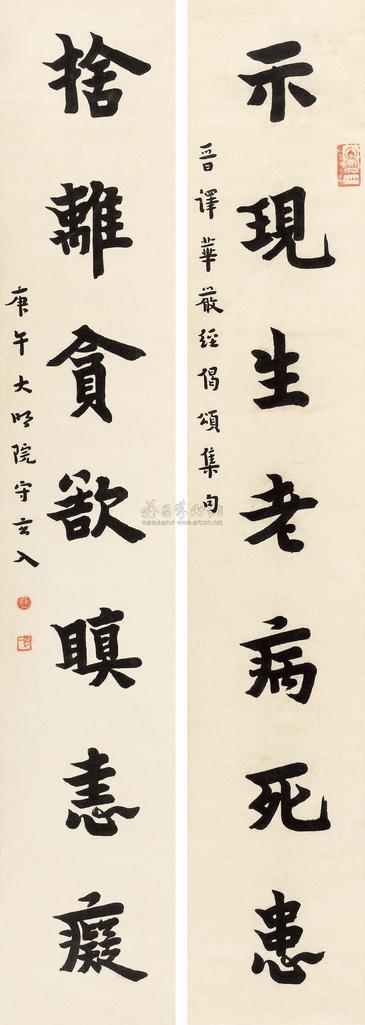 示現生老病死患
晋譯華嚴經偈頌集句
捨離貪欲瞋恚癡
庚午大明院守玄入
www.artron.net